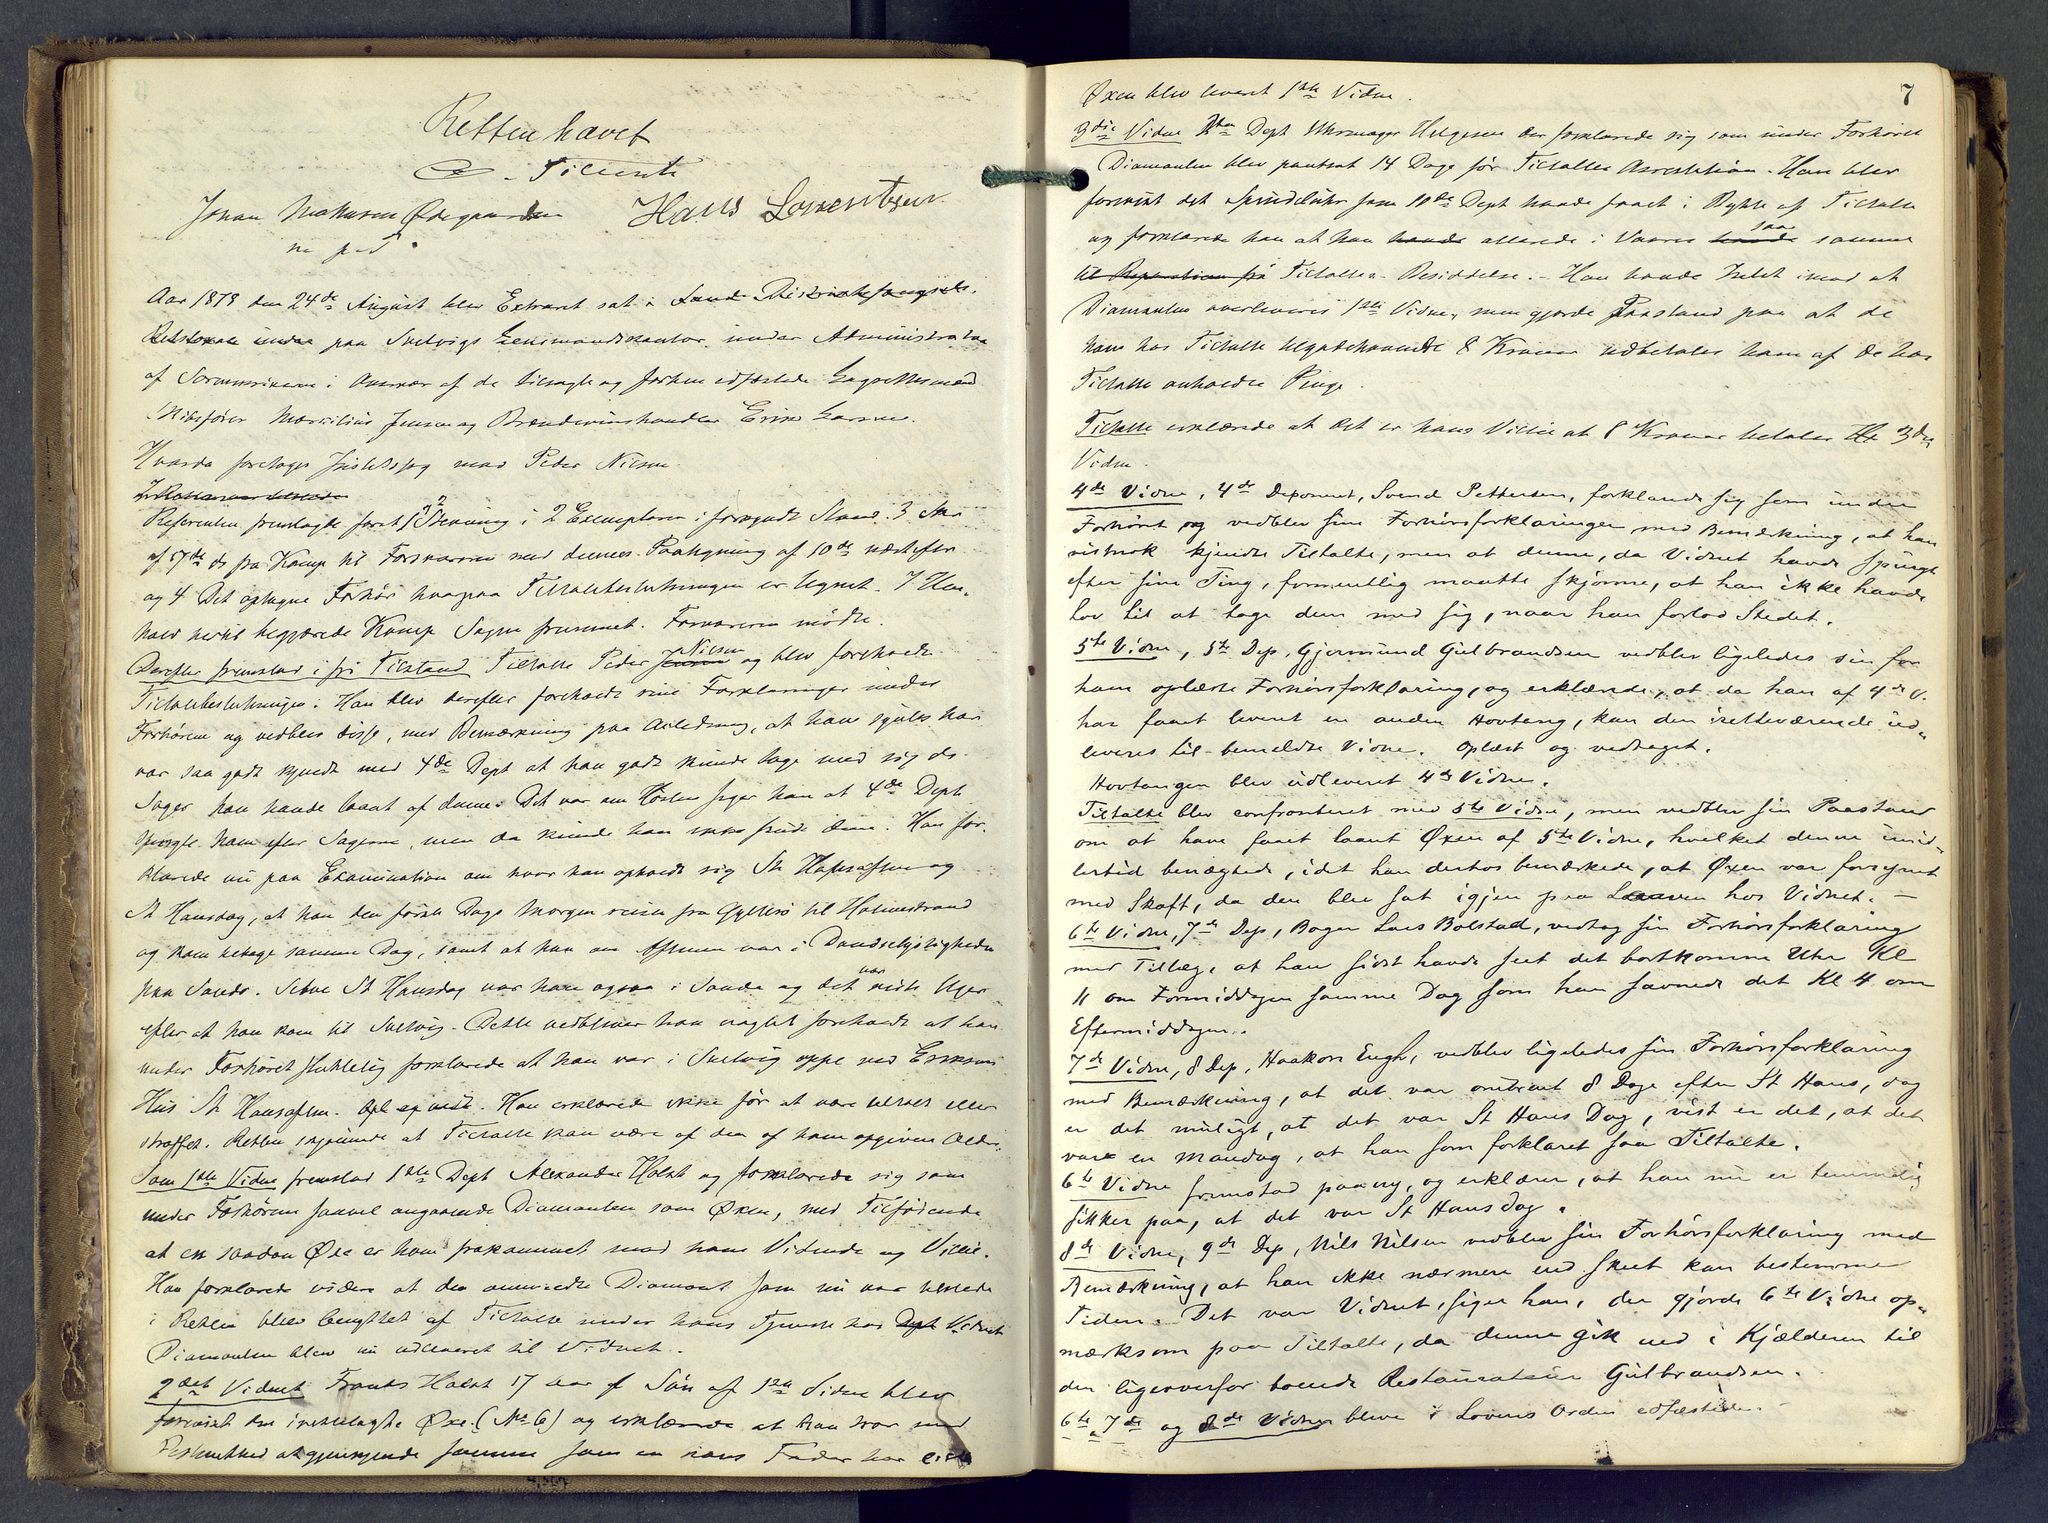 Retten hævet
Tillemk
Johan Mathisen Ødegaarden Hans Lorentzen
m p. P.
Aar 1878 den 24de August blev Extraret sat i Sande Distriktsfængsels
Retslokale inde paa Svelvigs Lensmandskontor under Administration
af Sorenskriveren i Overvær af de tilsagte og forhen edfæstede Lagrettesmænd
Skibsfører Marcilius Jensen og Brændevinshandler Erik Larsen.
Hvorda foretoges Justitssag mod Peder Nilsen
Referenten fremlagde først 1, 2 Stevning i 2 Exemplarer i forkyndt Stand. 3 Skr
af 17de ds fra Kamp til Forsvareren med dennes Paategning af 10de næstefter
og 4 Det optagne Forhør hvorpaa Tiltalebeslutningen er tegnet. I Hen-
hold hertil begjærede Kamp Sagen fremmet. Forsvareren mødte.
Derefter fremstod i fri Tilstand Tiltalte Peder Jensen Nilsen og blev foreholdt
Tiltalebeslutningen. Han blev derefter foreholdt sine Forklaringer under
Forhørene og vedblev disse, med Bemærkning paa Anledning, at han syntes han
var saa godt kjendt med 4de Dept at han godt kunde tage med sig de
Sager han havde laant af denne. Det var om Høsten siger han at 4de Dept
spurgte ham efter Sagerne, men da kunde han ikke finde dem. Han for-
klarede nu paa Examination om hvor han opholdt sig St Hansaften og
St Hansdag, at han den første Dags Morgen reiste fra Gyltesø til Holmestrand
og kom tilbage samme Dag, samt at han om Aftenen var i Dandselystigheder
paa Sande. Selve St Hansdag var han ogsaa i Sande og det var siste Uger
efter at han kom til Svelvig. Dette vedbliver han uagtet foreholdt at han
under Forhøret sluttelig forklarede at han var i Svelvig oppe ved Eriksens
Hus St Hansaften. Opl og vedt. Han erklærede ikke før at være tiltalt eller
straffet. Retten skjønnede at Tiltalte kan være af den af ham opgivne Alder.
Som 1ste Vidne fremstod 1ste Dept Alexander Holst og forklarede sig som
under Forhøren saavel angaaende Diamanten som Øxen, med Tilføiende
at en saadan Øxe er ham frakommet mod hans Vidende og Villie.
Han forklarede videre at den omvundte Diamant som nu var tilstede
i Retten blev benyttet af Tiltalte under hans Tjeneste hos Dept Vidnet
Diamanten blev nu udleveret til Vidnet.
2det Vidnet Frants Holst 17 Aar g Søn af 1ste Vidne blev
forevist den i rettelagte Øxe (No 6) og erklærede at han var med
Bestemthed at gjenkjende samme som en hans Fader har eiet
7
Øxen blev leveret 1ste Vidne.
3die Vidne 2den Dept Uhrmager Helgesen der forklarede sig som under Forhøret
Diamanten blev pantsat 14 Dage før Tiltaltes Arrestation. Han blev
forevist det Spindeluhr som 10de Dept havde faaet i Bytte af Tiltalte
og forklarede han at han havde allerede i Vaares havde saa samme
til Reparation fra Tiltaltes Besiddelse. – Han havde Intet imod at
Diamanten overleveres 1ste Vidne, men gjorde Paastand paa at de
ham hos Tiltalte tilgodehavende 8 Kroner udbetales ham af de hos
Tiltalte anholdte Penge.
Tiltalte erklærede at det er hans Villie at 8 Kroner betales 3die
Vidne.
4de Vidne, 4de Deponent, Svend Pettersen, forklarede sig som under
Forhøret og vedblev sine Forhørsforklaringer med Bemærkning, at han
vistnok kjendte Tiltalte, men at denne, da Vidnet havde spurgt
efter sine Ting, formentlig maatte skjønne, at han ikke havde
Lov til at tage dem med sig, naar han forlod Stedet.
5te Vidne, 5te Dep, Gjermund Gulbrandsen vedblev ligeledes sin for
ham oplæste Forhørsforklaring, og erklærede, at da han af 4de V.
har faaet leveret en anden Hovtang, kan den iretteværende ud-
leveres til bemeldte Vidne. Oplæst og vedtaget.
Hovtangen blev udleveret 4de Vidne.
Tiltalte blev confronteret med 5te Vidne, men vedblev sin Paastand
om at have faaet laant Øxen af 5te Vidne, hvilket denne imid-
lertid benægtede, idet han derhos bemærkede, at Øxen var forsynet
med Skaft, da den blev sat igjen paa Laaven hos Vidnet. –
6te Vidne, 7de Dep, Bager Lars Bolstad, vedtog sin Forhørsforklaring
med Tillæg, at han sidst havde seet det bortkomne Uhr Kl
11 om Formiddagen samme Dag som han savnede det Kl 4 om
Eftermiddagen.
7de Vidne, 8 Dep, Haakon Engh, vedblev ligeledes sin Forhørsforklaring
med Bemærkning, at det var omtrent 8 Dage efter St Hans, dog
er det muligt, at det var St Hans Dag, vist er det, at det
var en Mandag, at han som forklaret saa Tiltalte.
6te Vidne fremstod paany, og erklærer, at han nu er temmelig
sikker paa, at det var St Hansdag.
8de Vidne, 9de Dep, Nils Nilsen vedblev sin Forhørsforklaring med
Bemærkning, at han ikke nærmere end skeet kan bestemme
Tiden. Det var Vidnet, siger han, der gjorde 6te Vidne op-
mærksom paa Tiltalte, da denne gik ned i Kjælderen til
den ligeoverfor boende Restauratør Gulbrandsen.
6te, 7de og 8de Vidner bleve i Lovens Orden edfæstede.